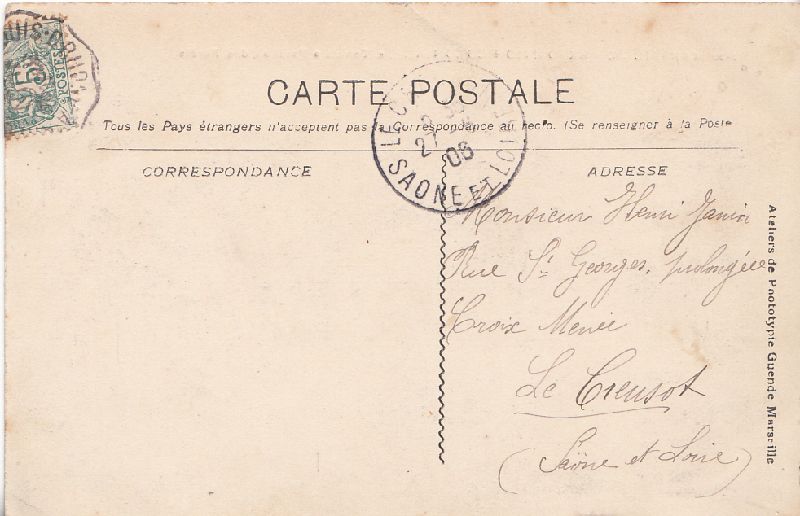 5
POSTES
CARTE POSTALE
Tous les Pays étrangers n'acceptent pas la Correspondance au recto. (Se renseigner à la Poste
CORRESPONDANCE
ADRESSE
06
SAONE ET LOIRE
Monsieur Henri Janin
Rue St Georges, prolongée
Croix Menée
Le Creusot
(Saône et Loire)
Ateliers de Phototypie Guende Marseille